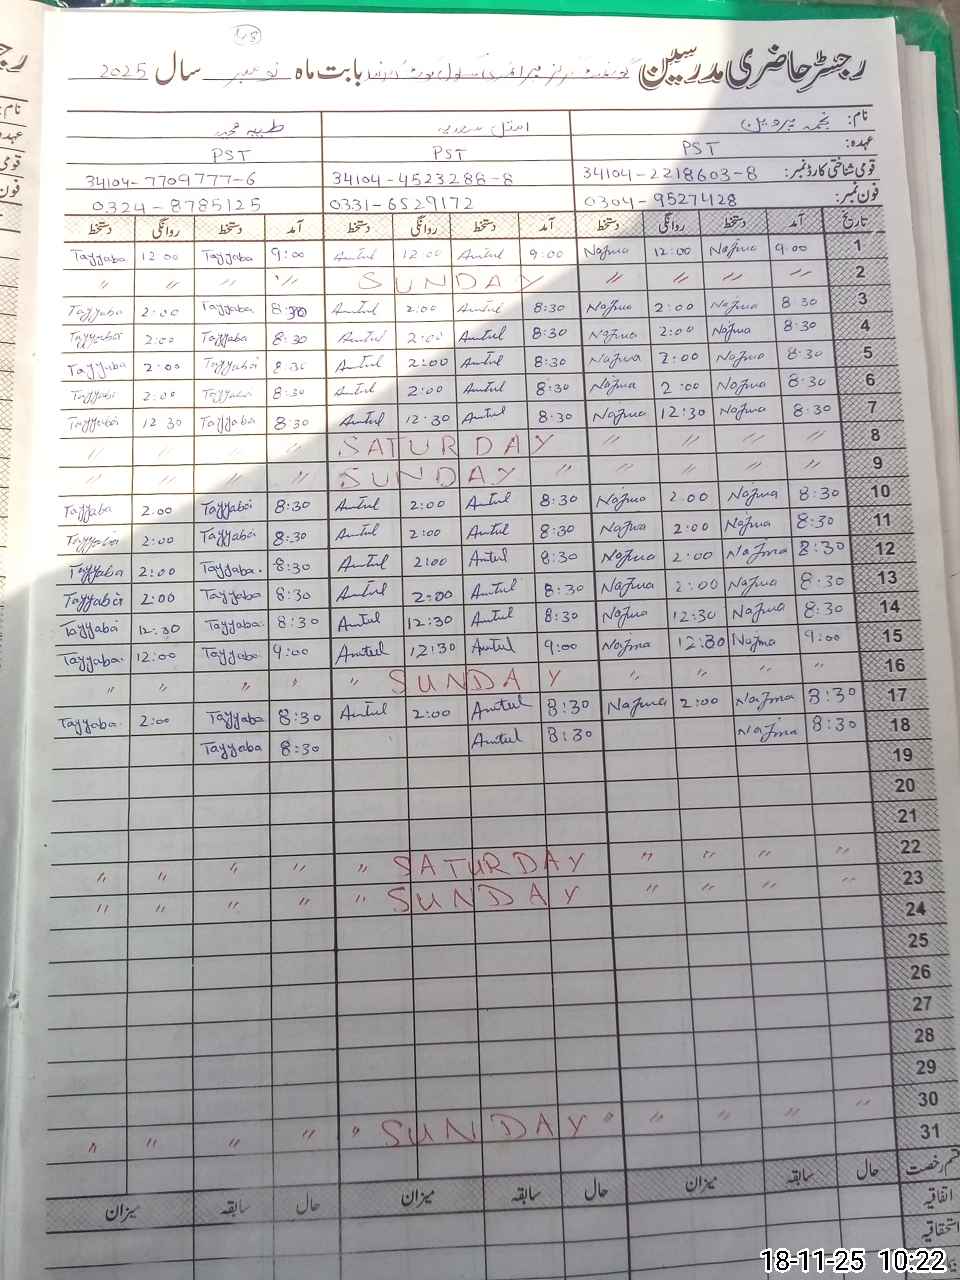 48
رجسٹر حاضری مدرسین بابت ماہ نومبر سال 2025
نام: نجمہ پروین امتل طیبہ
عہدہ: PST PST PST
قومی شناختی کارڈ نمبر: 34104-2218603-8 34104-4523288-8 34104-7709777-6
فون نمبر: 0304-9527428 0331-6529172 0324-8785125
تاریخ آمد دستخط روانگی دستخط آمد دستخط روانگی دستخط آمد دستخط روانگی دستخط
Tayyaba 12:00 Tayyaba 9:00 Amtul 12:00 Amtul 9:00 Najma 12:00 Najma 9:00 1
" " " " SUNDAY " " " " 2
Tayyaba 2:00 Tayyaba 8:30 Amtul 2:00 Amtul 8:30 Najma 2:00 Najma 8:30 3
Tayyaba 2:00 Tayyaba 8:30 Amtul 2:00 Amtul 8:30 Najma 2:00 Najma 8:30 4
Tayyaba 2:00 Tayyaba 8:30 Amtul 2:00 Amtul 8:30 Najma 2:00 Najma 8:30 5
Tayyaba 2:00 Tayyaba 8:30 Amtul 2:00 Amtul 8:30 Najma 2:00 Najma 8:30 6
Tayyaba 12:30 Tayyaba 8:30 Amtul 12:30 Amtul 8:30 Najma 12:30 Najma 8:30 7
" " " " SATURDAY " " " " 8
" " " " SUNDAY " " " " " 9
Tayyaba 2:00 Tayyaba 8:30 Amtul 2:00 Amtul 8:30 Najma 2:00 Najma 8:30 10
Tayyaba 2:00 Tayyaba 8:30 Amtul 2:00 Amtul 8:30 Najma 2:00 Najma 8:30 11
Tayyaba 2:00 Tayyaba. 8:30 Amtul 2:00 Amtul 8:30 Najma 2:00 Najma 8:30 12
Tayyaba 2:00 Tayyaba 8:30 Amtul 2:00 Amtul 8:30 Najma 2:00 Najma 8:30 13
Tayyaba 12:30 Tayyaba 8:30 Amtul 12:30 Amtul 8:30 Najma 12:30 Najma 8:30 14
Tayyaba. 12:00 Tayyaba 9:00 Amtul 12:30 Amtul 9:00 Najma 12:30 Najma 9:00 15
" " " " " SUNDAY " " " " 16
Tayyaba. 2:00 Tayyaba 8:30 Amtul 2:00 Amtul 8:30 Najma 2:00 Najma 8:30 17
Tayyaba 8:30 Amtul 8:30 Najma 8:30 18
19
20
21
" " " " " SATURDAY " " " " 22
" " " " " SUNDAY " " " " 23
24
25
26
27
28
29
" " " " " SUNDAY " " " " " 30
31
قسم رخصت حال سابقہ میزان حال سابقہ میزان حال سابقہ میزان
اتفاقیہ
استحقاقیہ
18-11-25 10:22